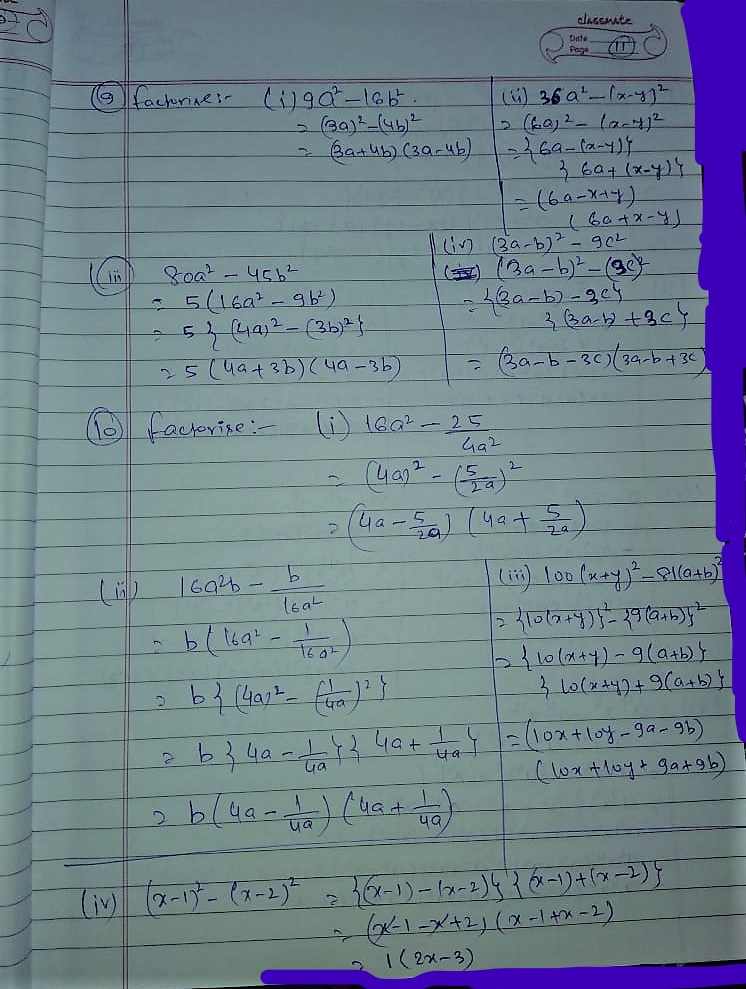 classmate
Date
Page 11
(9) factorise:- (i) 9a² - 16b².
= (3a)² - (4b)²
= (3a+4b) (3a-4b)
(ii) 36a² - (x-y)²
= (6a)² - (x-y)²
= {6a - (x-y)}
{6a + (x-y)}
= (6a-x+y)
(6a+x-y)
(iii) 80a² - 45b²
= 5(16a² - 9b²)
= 5 { (4a)² - (3b)² }
= 5 (4a+3b) (4a-3b)
(iv) (3a-b)² - 9c²
(3a-b)² - (3c)²
= {(3a-b) - 3c}
{(3a-b) + 3c}
= (3a-b-3c)(3a-b+3c)
(10) factorise:- (i) 16a² - 25/4a²
= (4a)² - (5/2a)²
= (4a - 5/2a) (4a + 5/2a)
(ii) 16a²b - b/16a²
= b(16a² - 1/16a²)
= b { (4a)² - (1/4a)² }
= b { 4a - 1/4a } { 4a + 1/4a }
= b (4a - 1/4a) (4a + 1/4a)
(iii) 100(x+y)² - 81(a+b)²
= {10(x+y)}² - {9(a+b)}²
= {10(x+y) - 9(a+b)}
{10(x+y) + 9(a+b)}
= (10x+10y-9a-9b)
(10x+10y+9a+9b)
(iv) (x-1)² - (x-2)² = {(x-1) - (x-2)} {(x-1) + (x-2)}
= (x-1-x+2) (x-1+x-2)
= 1(2x-3)